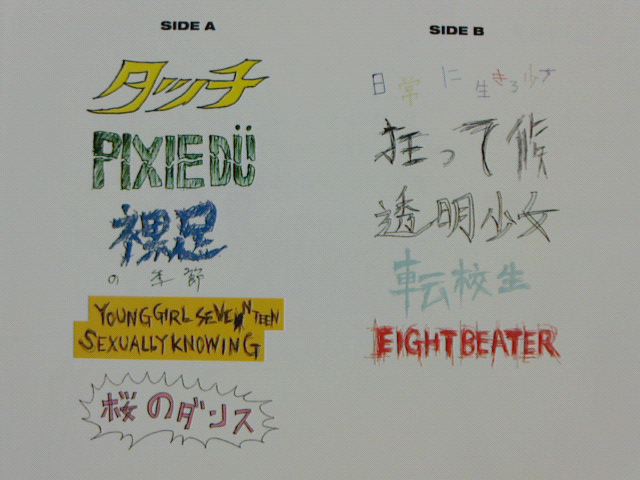 SIDE A
タッチ
PIXIE DÜ
裸足
の季節
YOUNG GIRL SEVENTEEN
SEXUALLY KNOWING
桜のダンス
SIDE B
日常に生きる少女
狂って候
透明少女
転校生
EIGHT BEATER